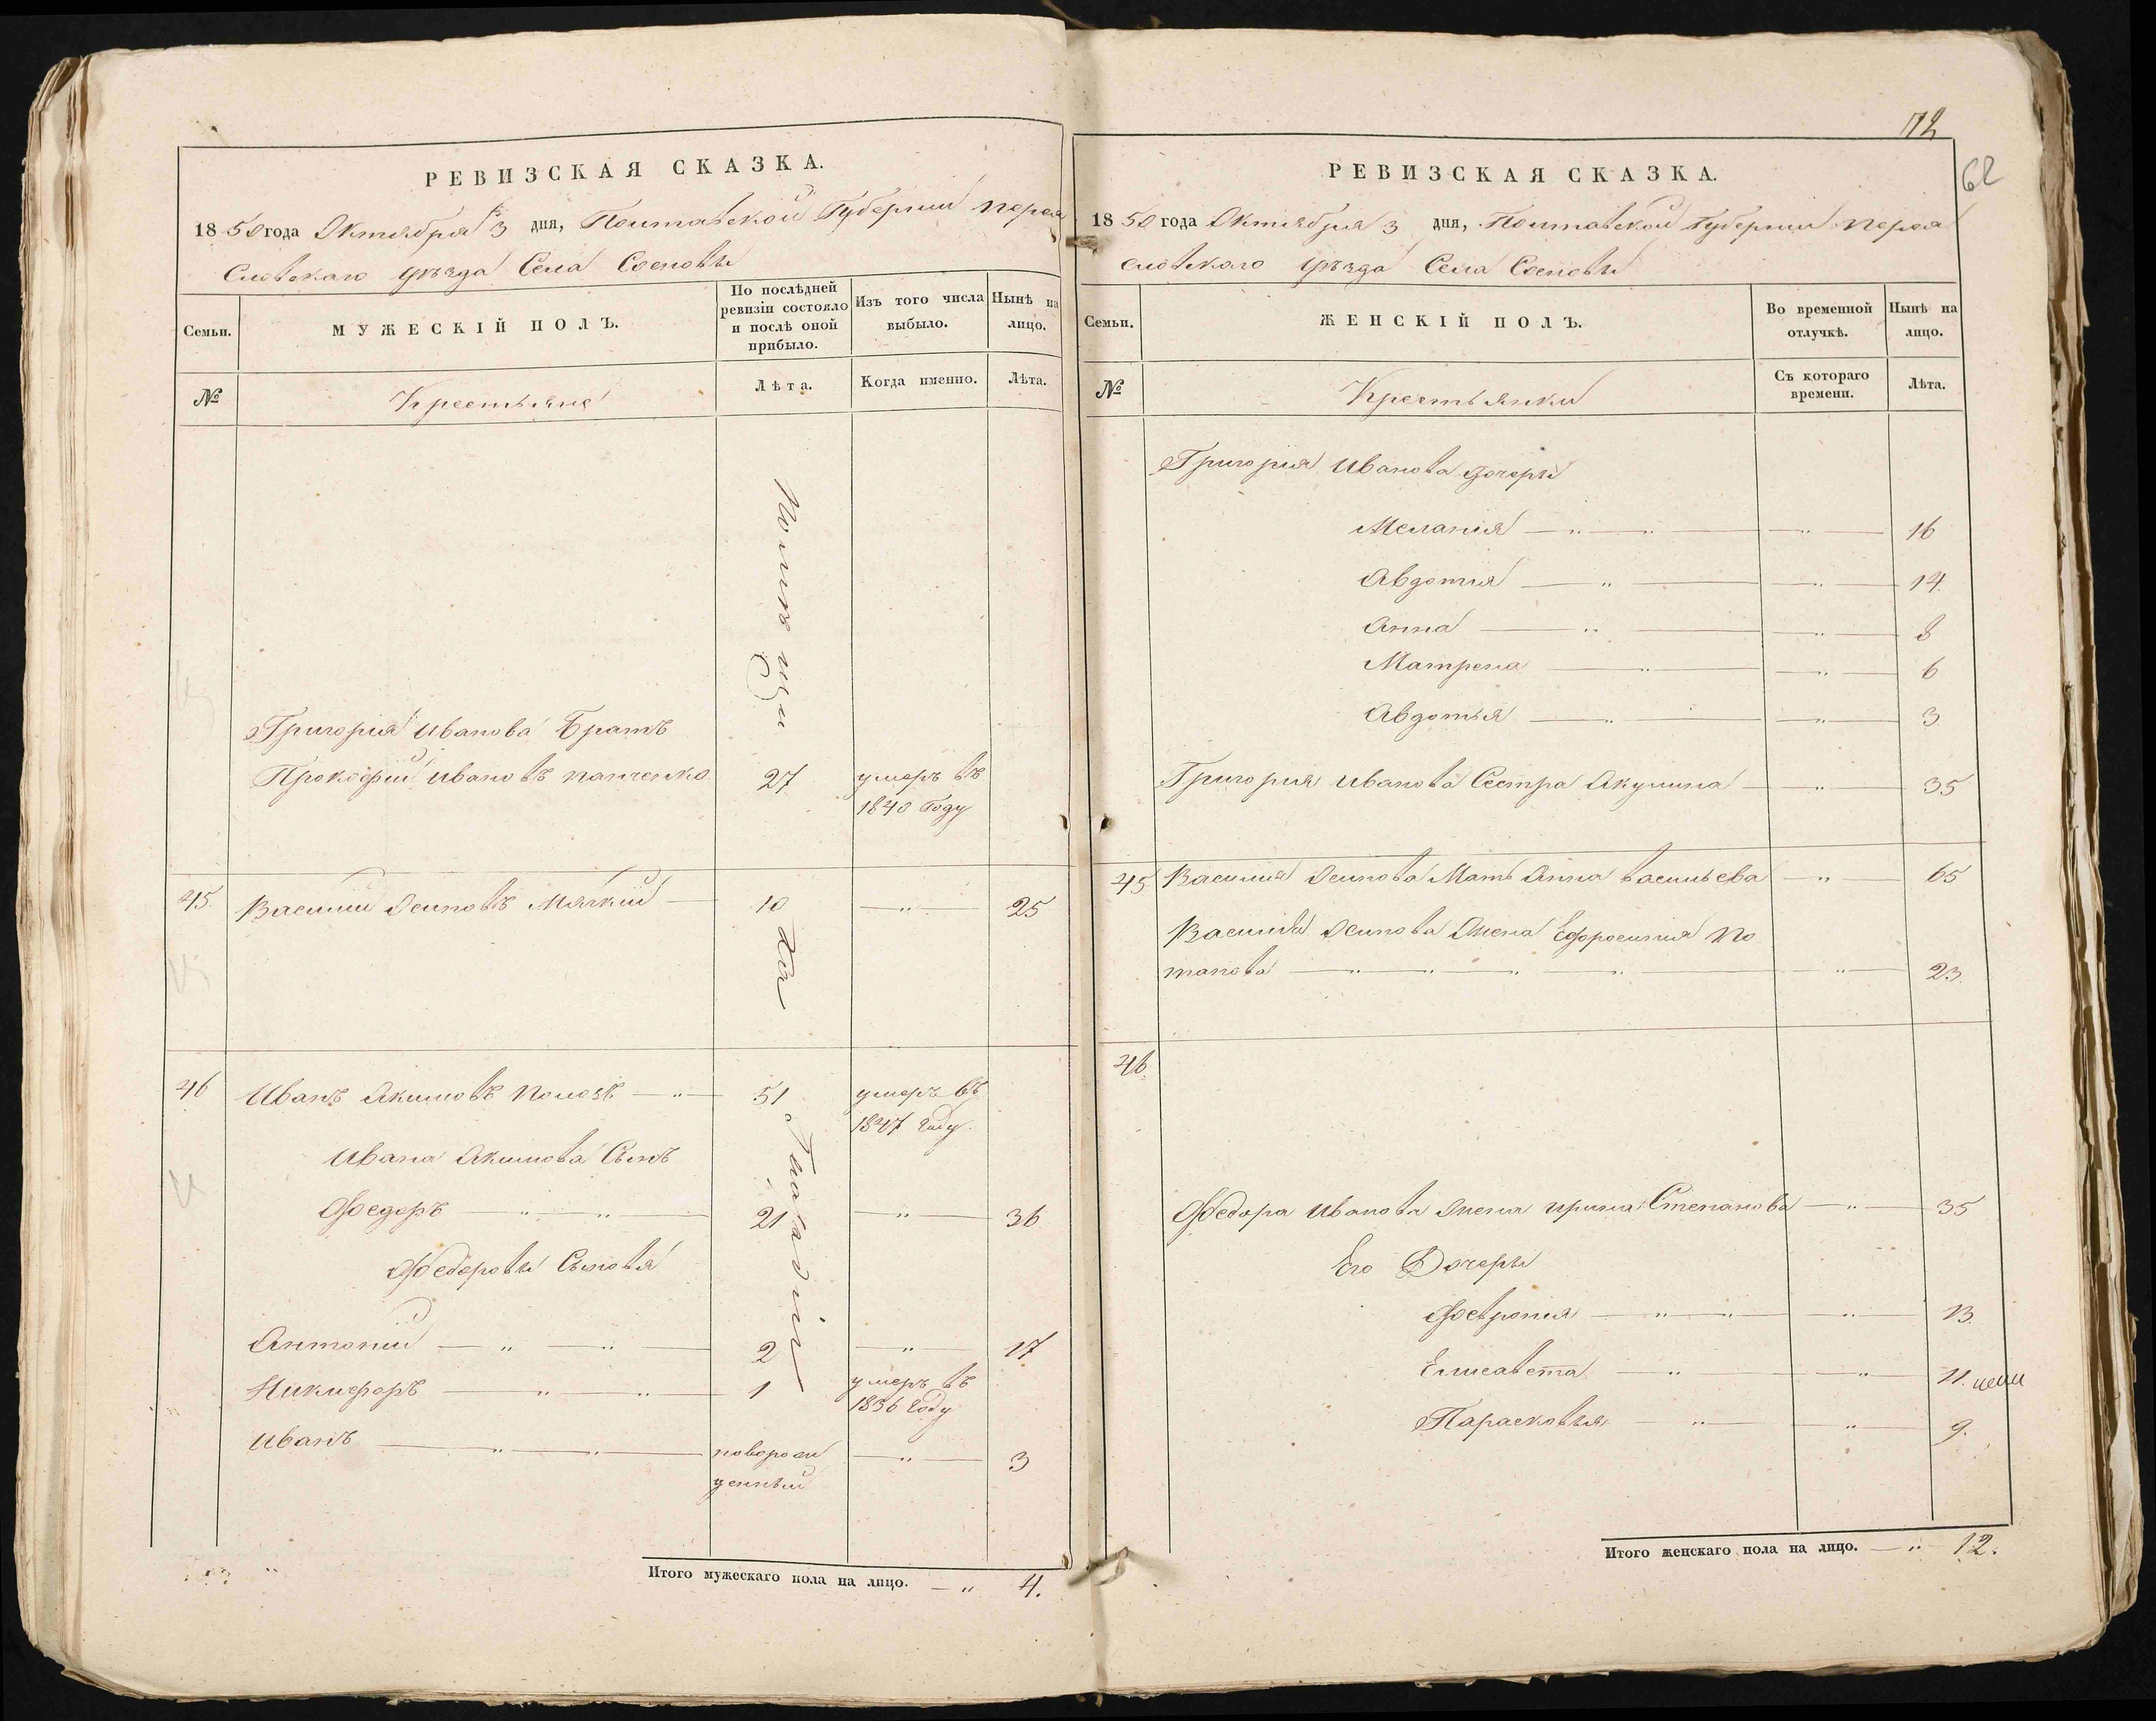 РЕВИЗСКАЯ СКАЗКА.
1850 года Октября 3 дня, Полтавской Губернии Перея
Славскаго уѣзда Села Сосновы
Семьи.
МУЖЕСКІЙ ПОЛЪ.
По послѣдней ревизіи состояло и послѣ оной прибыло.
Изъ того числа выбыло.
Нынѣ на лицо.
№
Крестьяне
Лѣта.
Когда именно.
Лѣта.
Григорія Иванова Братъ
Прокофій Ивановъ Панченко 27 умеръ въ
1840 Году
45. Василій Осиповъ Мягкий — 10 — „ — 25
46 Иванъ Акимовъ — „ — 51 умеръ въ
1847 Году.
Ивана Акимова Сынъ
Федоръ — „ — „ — 21 — „ — 36
Федоровы Сыновья
Антоній — „ — „ — 2 — „ — 17
Никифоръ — „ — „ — 1 умеръ въ
1836 Году
Иванъ — „ — „ — новорож
денный — „ — 3
Итого мужескаго пола на лицо. — „ 4.
72
62
РЕВИЗСКАЯ СКАЗКА.
1850 года Октября 3 дня, Полтавской Губернии Перея
славскаго уѣзда Села Сосновы
Семьи.
ЖЕНСКІЙ ПОЛЪ.
Во временной отлучкѣ.
Нынѣ на лицо.
№
Крестьянки
Съ котораго времени.
Лѣта.
Григорія Иванова дочери
Меланія — „ — „ — — „ — 16
Авдотия — „ — — „ — 14.
Анна — „ — — „ — 8
Матрена — „ — — „ — 6
Авдотья — „ — — „ — 3
Григорія Иванова Сестра Акулина — — „ — 35
45 Василия Осипова Мать Анна Васильева — „ — 65
Василия Осипова Жена Ефросиния По
тапова — „ — „ — „ — „ — „ — 23.
46.
Федора Иванова Жена Ирина Степанова — „ — 35
Его Дочери
Феврония — „ — „ — „ 13.
Елисавета — „ — — „ — 11.
Парасковья — „ — „ — 9.
Итого женскаго пола на лицо. — „ — 12.